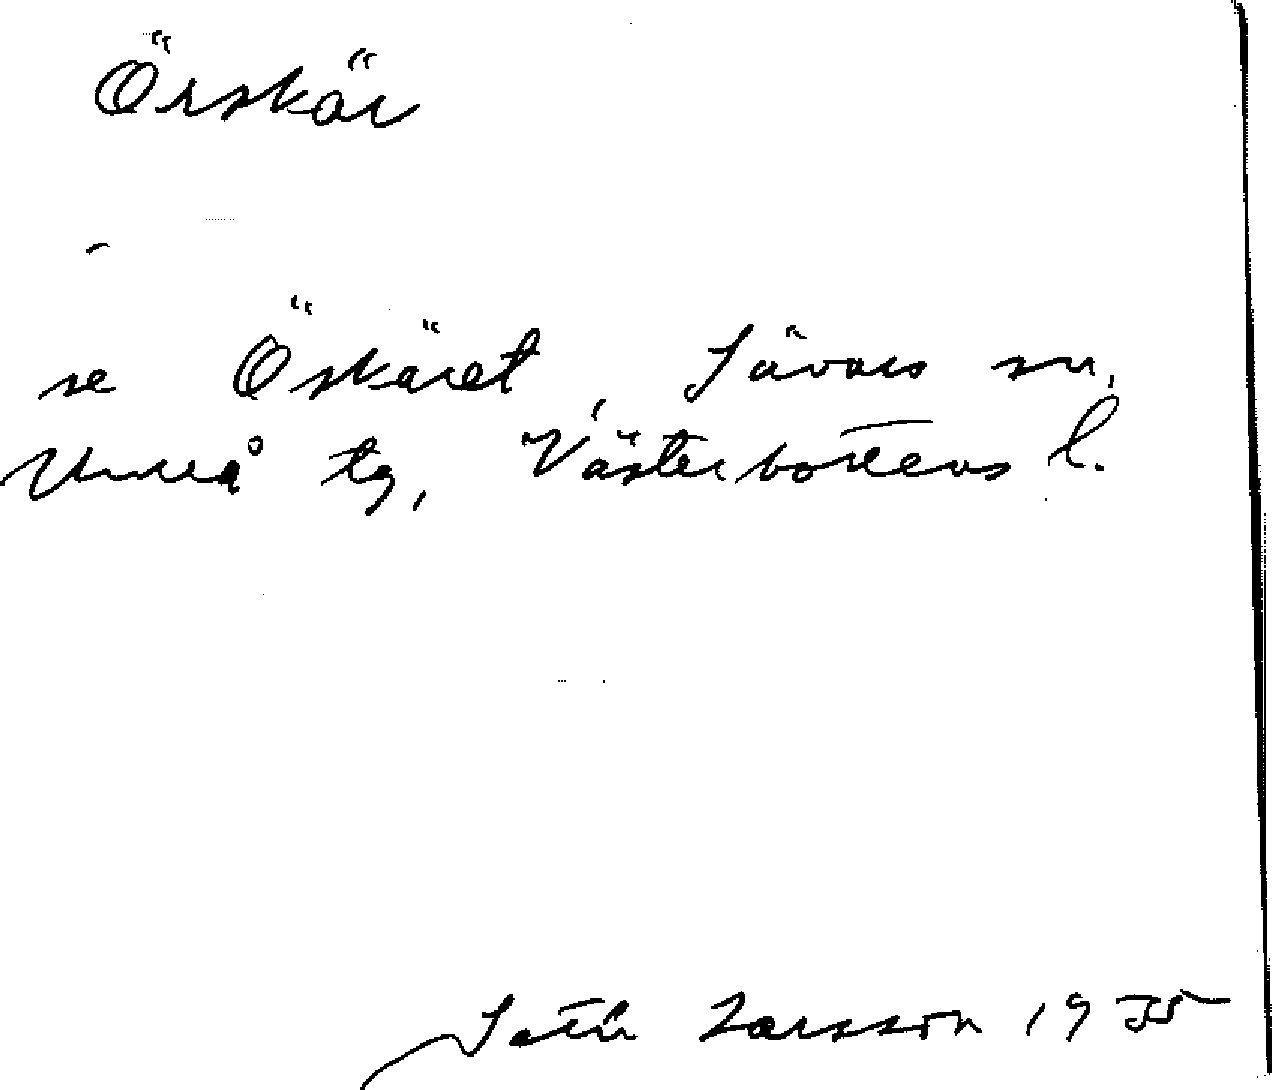 Örskär
se Öskäret, Sävars sn,
Umeå tg, Västerbottens l.
Larsson 19